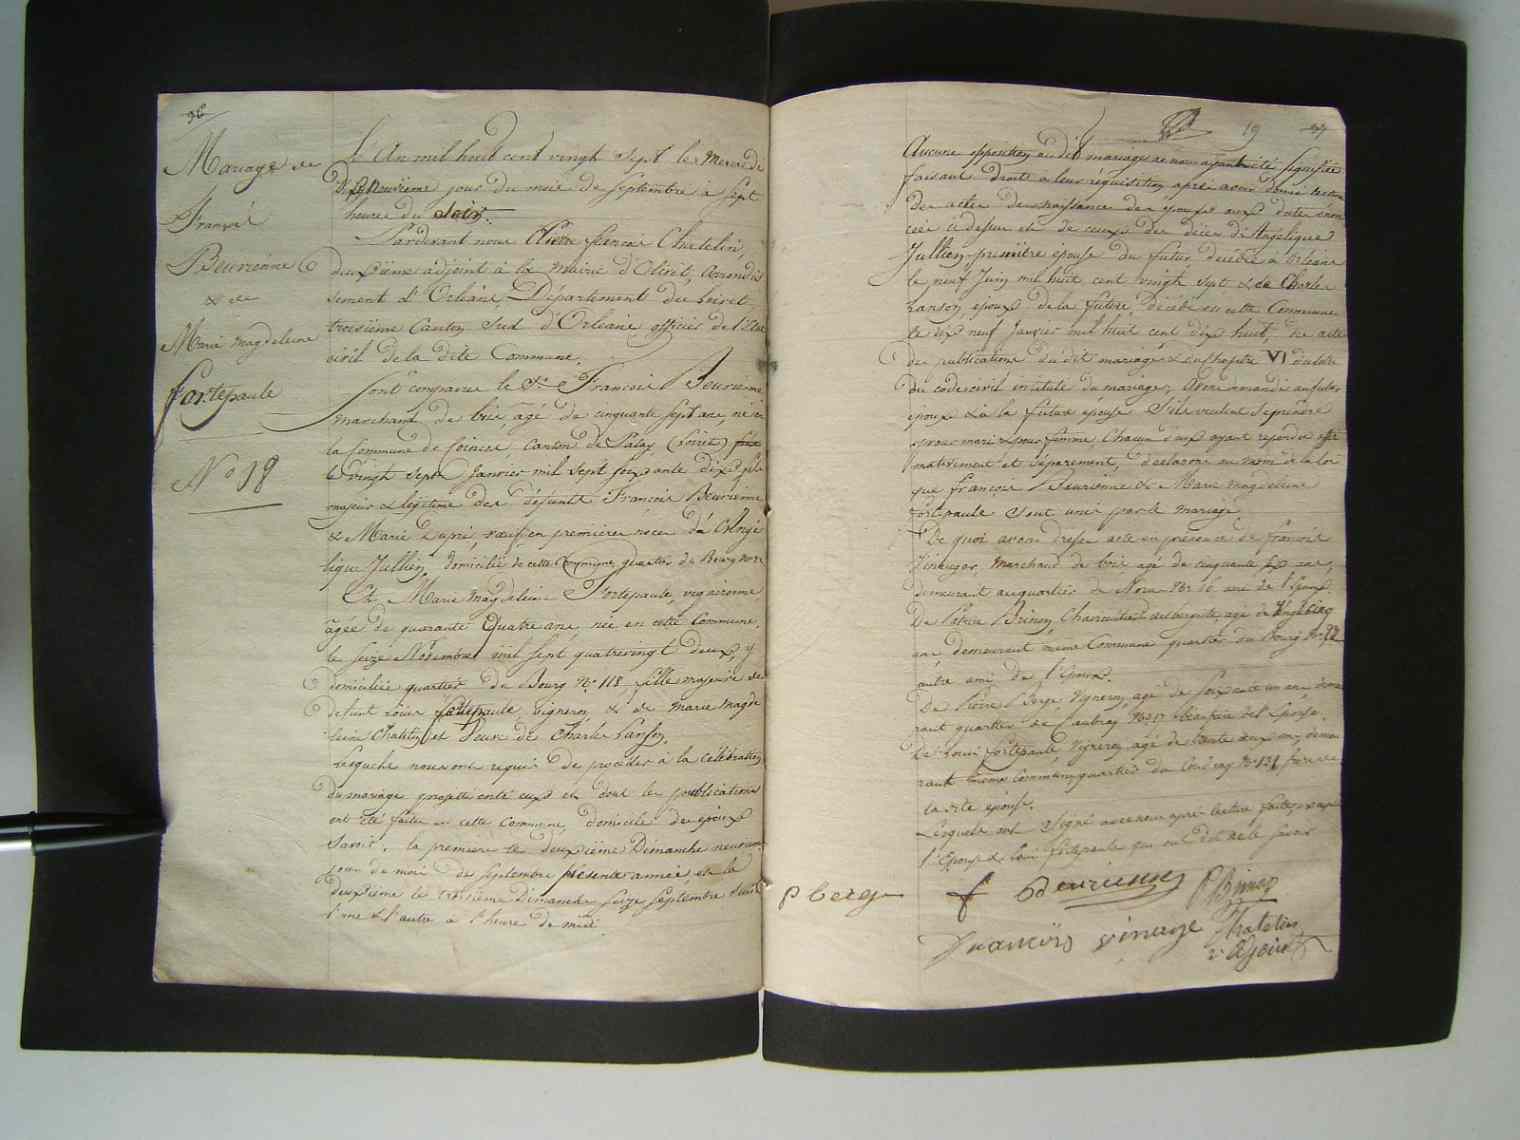 96
Mariage de
François
Beurienne
& de
Marie Magdeleine
fortepaule
N° 18
L'An mil huit cent vingt sept le Mercredi
Dix Neuvième jour du mois de Septembre à Sept
heures du Soir.
Pardevant nous Pierre francois Chatelin,
deuxième adjoint à la Mairie d'Olivet, Arrondis
sement d'Orléans, Département du Loiret
troisième Canton Sud d'Orléans officier de l'Etat
civil de la dite Commune.
Sont comparus le Sr François Beurienne
marchand de bois âgé de cinquante sept ans, né en
la Commune de Coinces, Canton de Patay (Loiret)
le vingt sept Janvier mil sept soixante dix, fils
majeur & légitime des défunts François Beurienne
& Marie Dupré, veuf en premières noces d'Angé
lique Jullien, domicilié de cette Commune, quartier du Bourg
Et Marie Magdeleine Fortepaule, vigneronne,
âgée de quarante Quatre ans, née en cette Commune,
le seize Novembre mil sept quatrevingt deux, y
domiciliée quartier du Bourg N° 118, fille majeure de
defunt Louis fortepaule vigneron & de Marie Magde
leine Chatelin et Veuve de Charles Lanson.
Lesquels nous ont requis de procéder à la célébration
du mariage projetté entre eux et dont les publications
ont été faites en cette Commune, domicile des époux
Savoir: la première le deuxième Dimanche neuvième
jour du mois de Septembre présente année, et la
deuxième le troisième Dimanche Seize Septembre
l'une & l'autre à l'heure de midi.
19
97
Aucune opposition au dit mariage ne nous ayant été signifiée
faisant droit à leur réquisition après avoir donné lecture
des actes de naissance des époux aux dates énon
cées ci dessus et de ceux des décès d'Angélique
Jullien première épouse du futur décédée à Orléans
le neuf Juin mil huit cent vingt sept & de Charles
Lanson, époux de la future, décédé en cette Commune
le dix neuf Janvier mil huit cent dix huit, des actes
de publications du dit mariage & du chapitre VI du titre
du code civil intitulé du mariage; Avons demandé au futur
époux & à la future épouse s'ils veulent se prendre
pour mari & pour femme, Chacun d'eux ayant répondu affir
mativement et séparement, déclarons au nom de la loi
que françois Beurienne & Marie Magdeleine
fortepaule Sont unis par le mariage
De quoi avons dressé acte en présence de françois
marchand de bois agé de cinquante ans,
demeurant au quartier de N° 16 ami de l'époux.
De Brinon agé de Vingt Cinq
ans demeurant même Commune quartier du Bourg N° 22
autre ami de l'époux.
De Pierre Berge Vigneron, agé de Soixante un ans demeu
rant quartier de N° 17 beaupère de l'épouse.
De Louis fortepaule Vigneron, agé de trente deux ans, demeu
rant même Commune quartier du N° 131 frère de
la dite épouse.
Lesquels ont Signé avec nous après lecture faite, excepté
l'épouse & Louis fortepaule qui ont dit ne le Savoir
P berge f Beurienne P Brinon
francois vinauge Chatelin
2e Adjoint